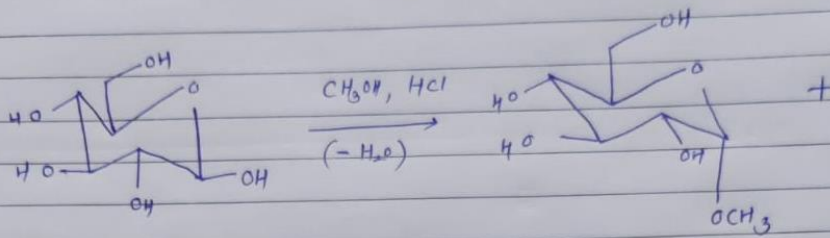 OH
O
HO
HO
OH
OH
CH₃OH, HCl
(-H₂O)
OH
O
HO
HO
OH
OCH₃
+